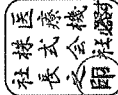 医療機
株式会社
社長之印